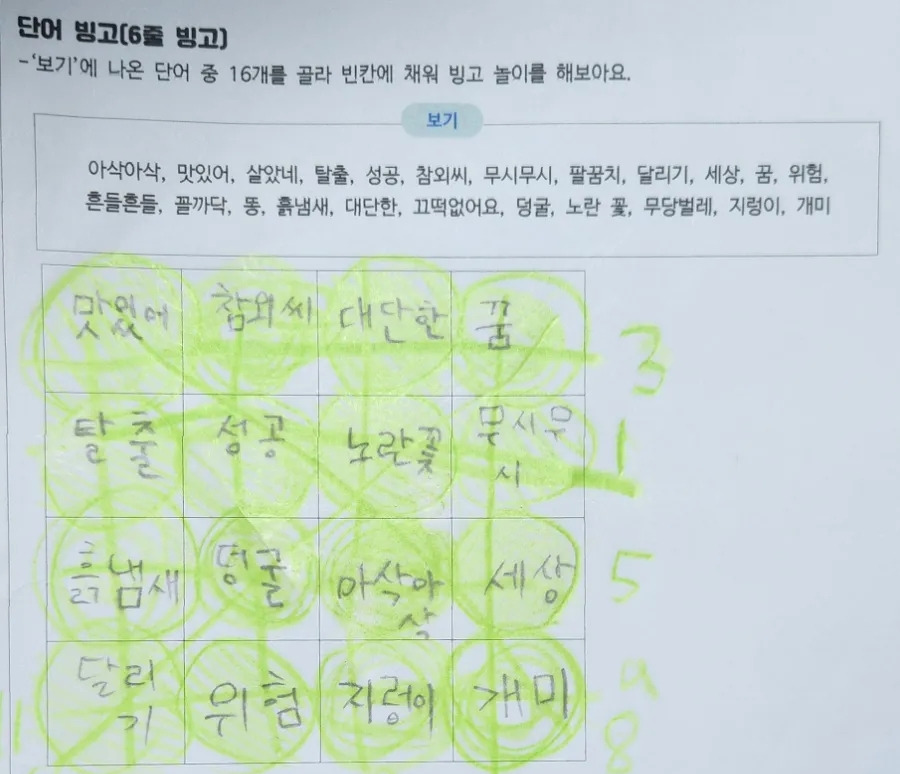 단어 빙고(6줄 빙고)
-'보기'에 나온 단어 중 16개를 골라 빈칸에 채워 빙고 놀이를 해보아요.
보기
아삭아삭, 맛있어, 살았네, 탈출, 성공, 참외씨, 무시무시, 팔꿈치, 달리기, 세상, 꿈, 위험,
흔들흔들, 꼴까닥, 똥, 흙냄새, 대단한, 끄떡없어요, 덩굴, 노란 꽃, 무당벌레, 지렁이, 개미
맛있어 참외씨 대단한 꿈 3
탈출 성공 노란꽃 무시무
시 1
흙냄새 덩굴 아삭아
삭 세상 5
달리
기 위험 지렁이 개미
8